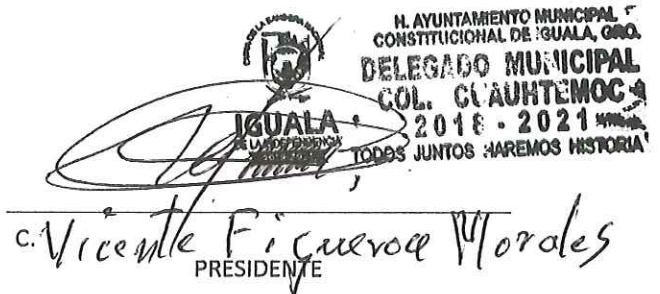 H. AYUNTAMIENTO MUNICIPAL
CONSTITUCIONAL DE IGUALA, GRO.
DELEGADO MUNICIPAL
COL. CUAUHTEMOC
2018 - 2021
TODOS JUNTOS HAREMOS HISTORIA
IGUALA
C. Vicente Figueroa Morales
PRESIDENTE